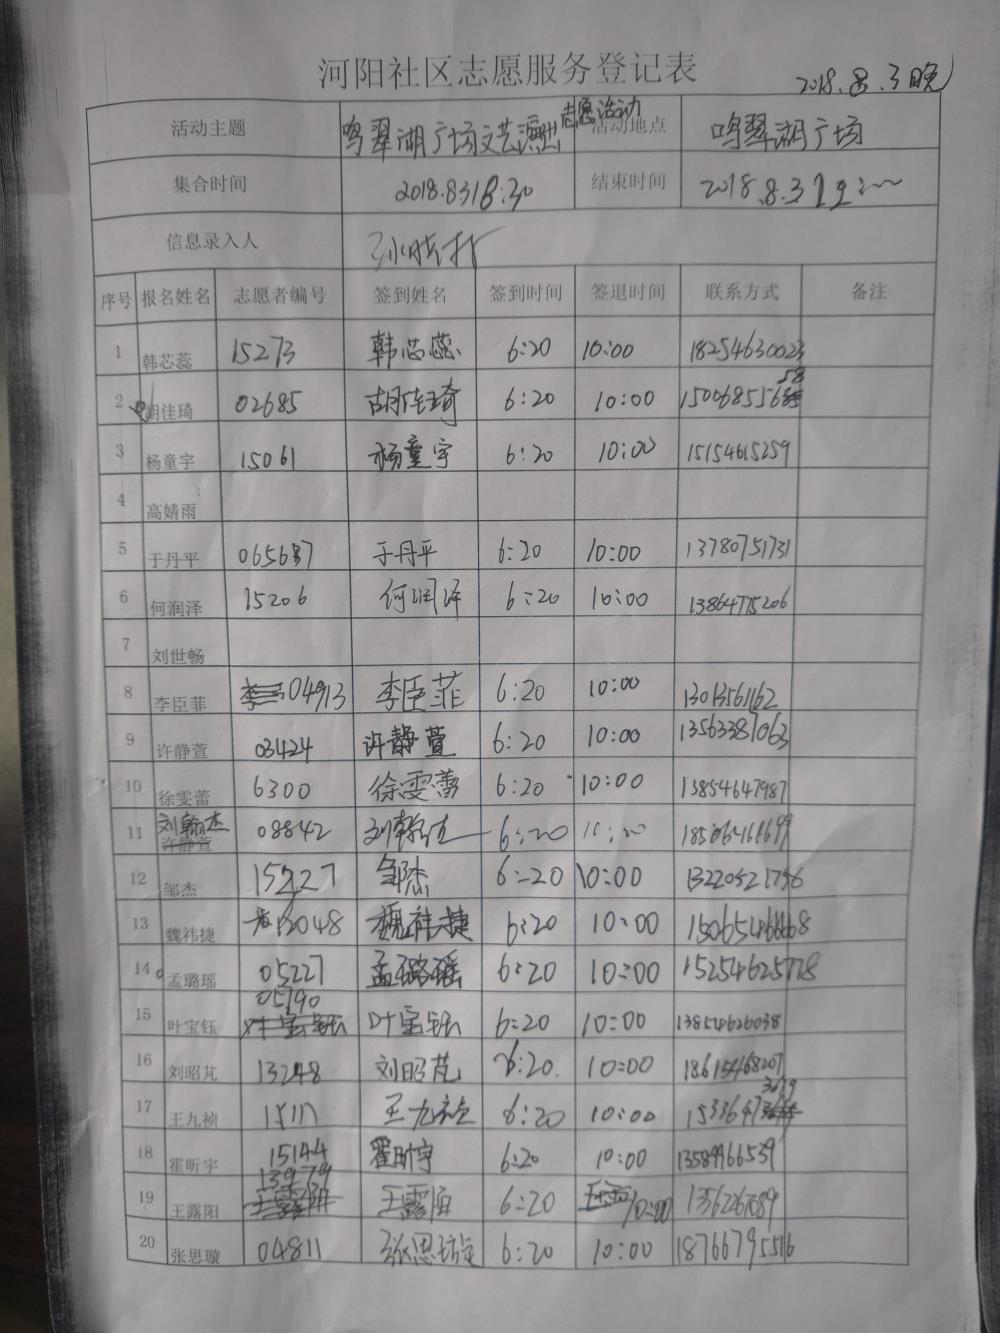 河阳社区志愿服务登记表
2018.8.3晚
活动主题 鸣翠湖广场文艺演出志愿活动 活动地点 鸣翠湖广场
集合时间 2018.8.3 18:30 结束时间 2018.8.3
信息录入人
序号 报名姓名 志愿者编号 签到姓名 签到时间 签退时间 联系方式 备注
1 韩芯蕊 15273 韩芯蕊 6:20 10:00 18254630023
2 胡佳琦 02685 胡佳琦 6:20 10:00
3 杨童宇 15061 杨童宇 6:20 10:00 15154615259
4 高婧雨
5 于丹平 于丹平 6:20 10:00 13780751731
6 何润泽 15206 何润泽 6:20 10:00 13864775206
7 刘世畅
8 李臣菲 04913 李臣菲 6:20 10:00 13013561162
9 许静萱 03424 许静萱 6:20 10:00 13563387063
10 徐雯蕾 6300 徐雯蕾 6:20 10:00 13854647987
11 刘翰杰 许静萱 08842 刘翰杰 6:20
12 邹杰 15227 邹杰 6:20 10:00 13220521756
13 魏祎捷 12048 魏祎捷 6:20 10:00
14 孟璐瑶 05227 孟璐瑶 6:20 10:00 15254625778
15 叶宝钰 05790 叶宝钰 6:20 10:00 13854626038
16 刘昭芃 13248 刘昭芃 6:20 10:00 18615468207
17 王九祯 15111 王九祯 6:20 10:00
18 霍昕宇 15144 霍昕宇 6:20 10:00 13589966539
19 王露阳 13979 王露阳 6:20 10:00
20 张思璇 04811 张思璇 6:20 10:00 18766795516